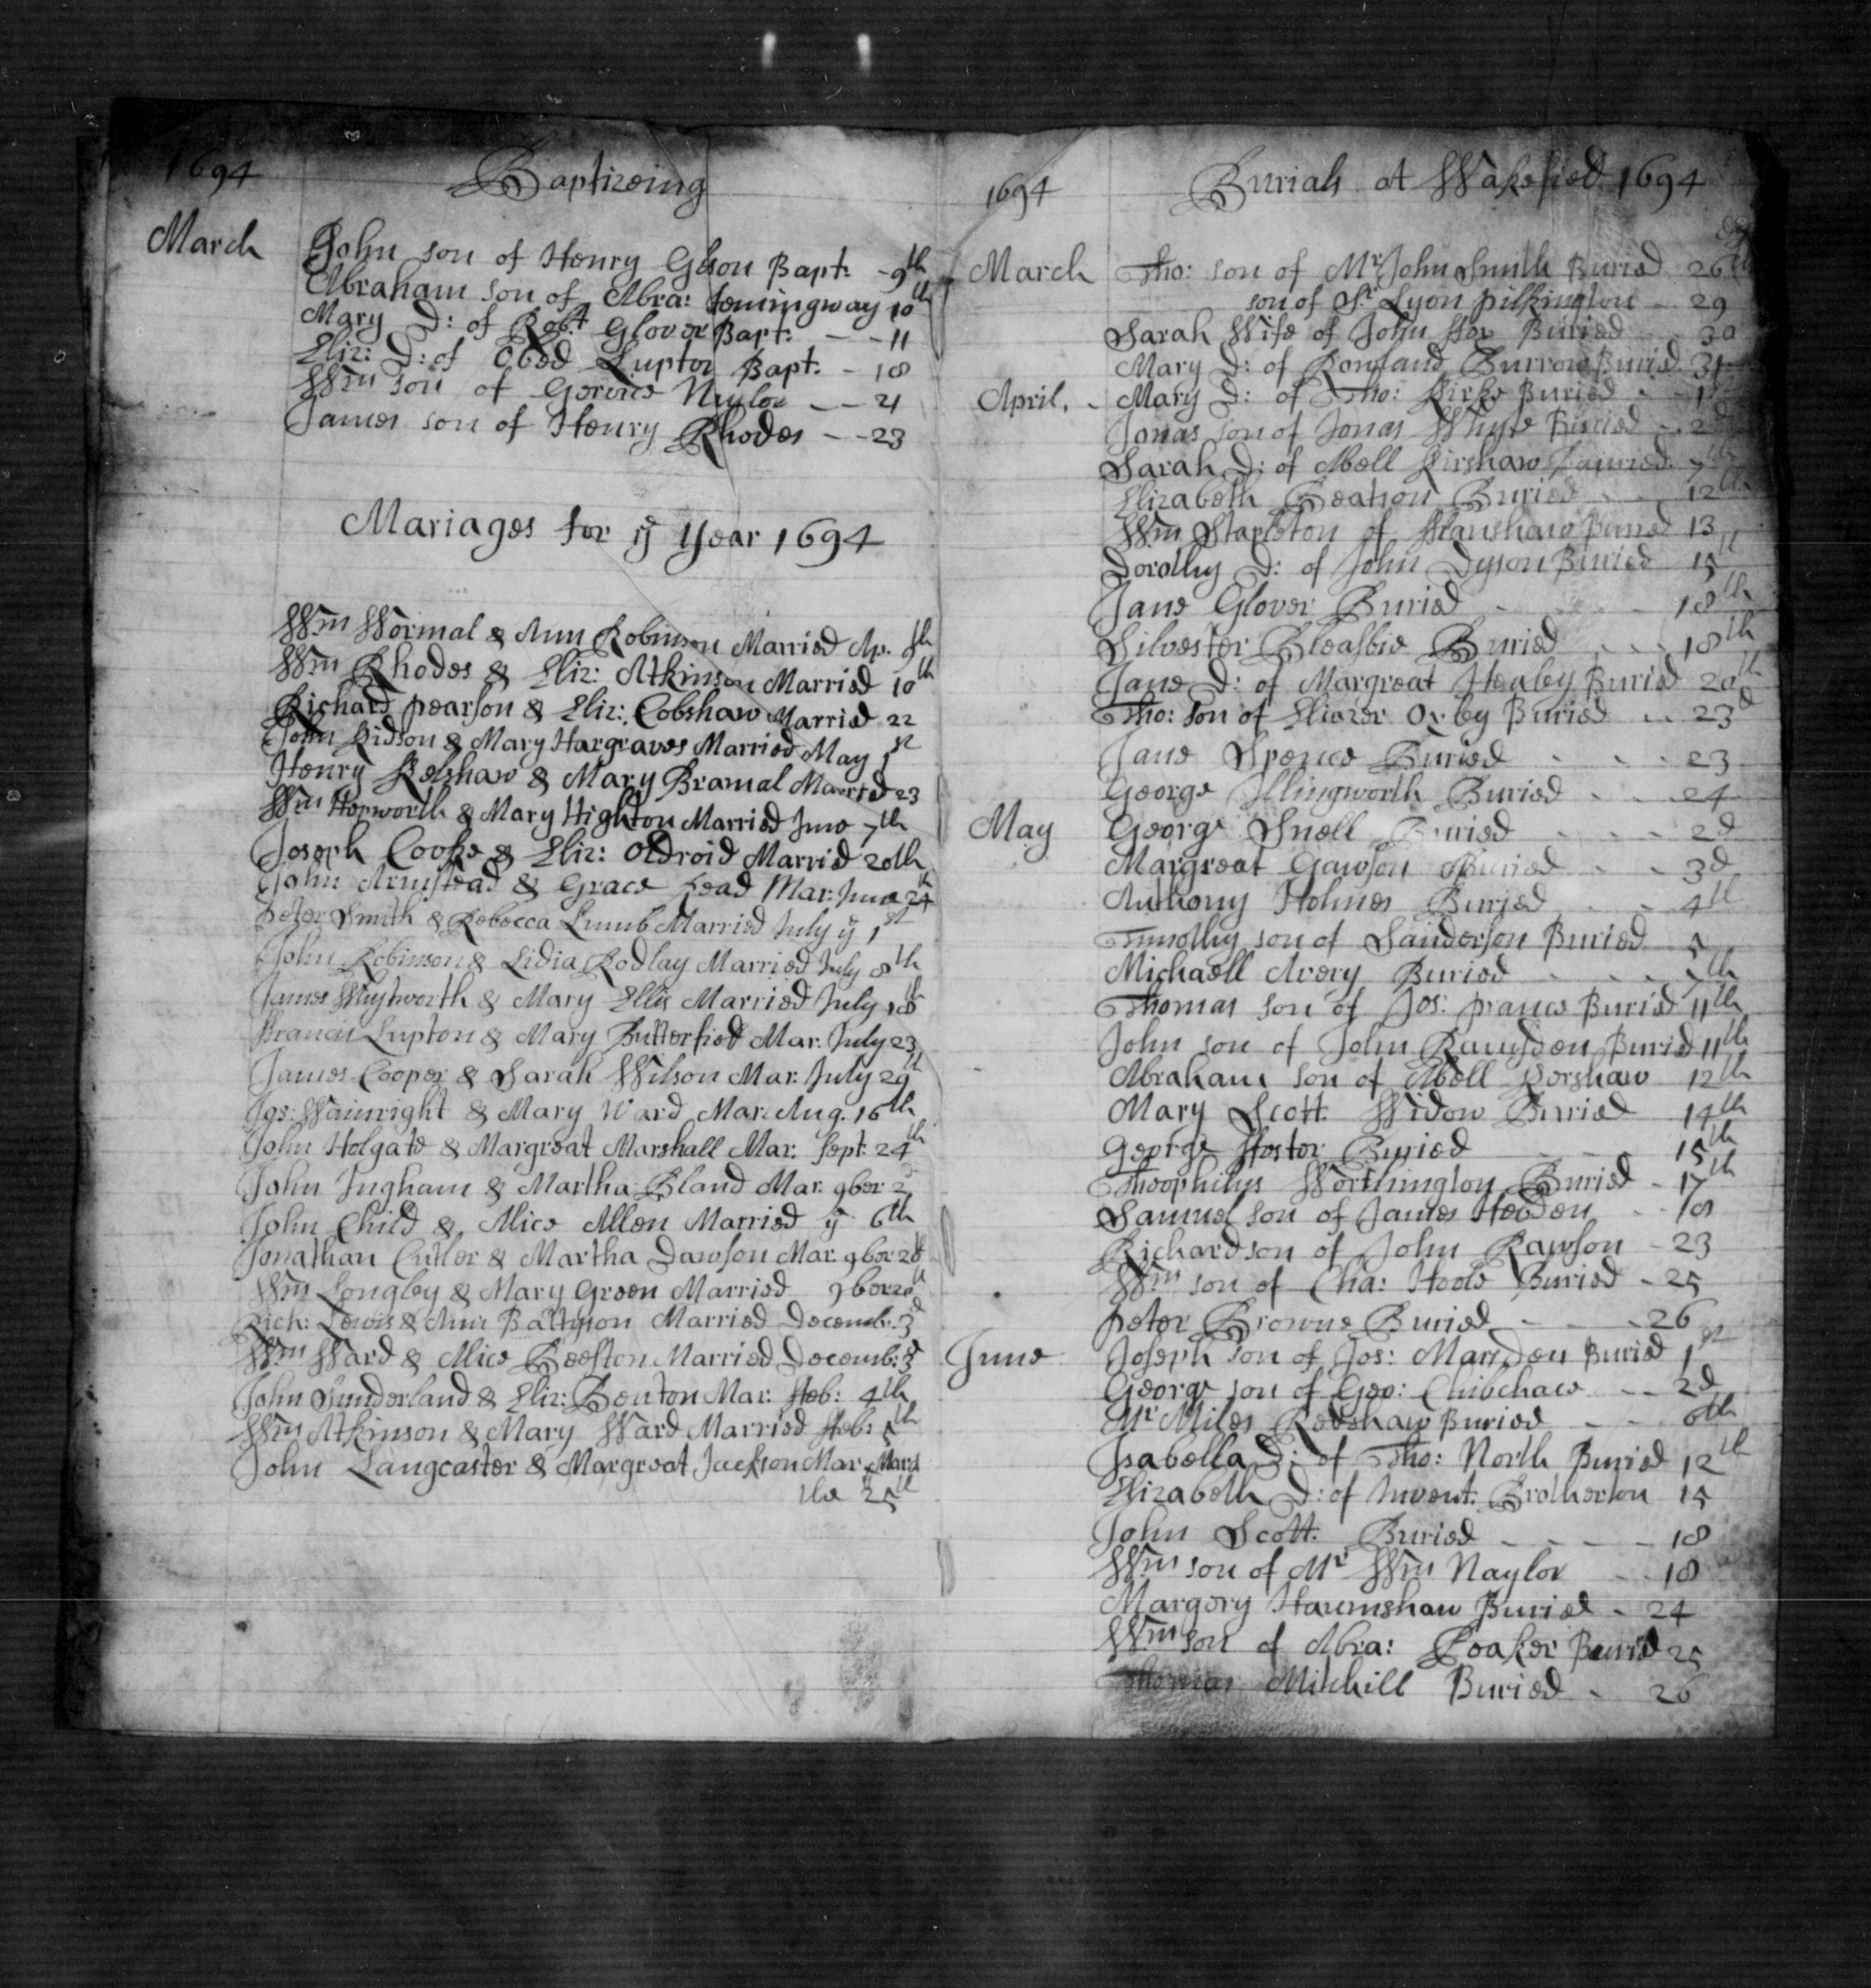 1694 Baptizeing
March John son of Henry Gleson Bapt: - 9th
Abraham son of Abra: Hemingway 10th
Mary D: of Robt Glover Bapt: - - 11
Eliz: D: of Obed Lupton Bapt. - 18
Wm son of Gervice Naylor - - 21
James son of Henry Rhodes - - 23
Mariages for ye year 1694
Wm Wormal & Ann Robinson Married Ap. 9th
Wm Rhodes & Eliz: Atkinson Married 10th
Richard pearson & Eliz: Cobshaw Married 22
John Kidson & Mary Hargraves Married May 1st
Henry Relshaw & Mary Bramal Married 23
Wm Hepworth & Mary Highton Married June 7th
Joseph Cooke & Eliz: Oldroid Marrid 20th
John Armstead & Grace Lead Mar: June 24th
peter Smith & Rebecca Lumb Married July ye 1st
John Robinson & Lidia Rodlay Married July 8th
James Whytworth & Mary Ellis Married July 18th
Francis Lupton & Mary Butterfied Mar. July 23
James Cooper & Sarah Wilson Mar. July 29th
Jos: Wainright & Mary Ward Mar. Aug. 16th
John Holgate & Margreat Marshall Mar. Sept. 24th
John Ingham & Martha Bland Mar. 9ber 2d
John Child & Alice Allen Married ye 6th
Jonathan Cutler & Martha Dawson Mar. 9ber 20th
Wm Longley & Mary Green Married 9ber 20th
Rich: Lewis & Ann Battyson Married Decemb: 3d
Wm Ward & Alice Beeston Married Decemb: 3d
John Sunderland & Eliz: Benton Mar. Feb: 4th
Wm Atkinson & Mary Ward Married Feb: 5th
John Langcaster & Margreat Jackson Mar. March
the 25th
1694 Burials at Wakefied 1694
March Tho: son of Mr John Smith Buried 26th
son of Sr Lyon pilkington - 29
Sarah Wife of John Fox Buried 30
Mary D: of Rowland Burrow Buried 31
April. - Mary D: of Tho: Kirke Buried - 1st
Jonas son of Jonas Whyte Buried - 2d
Sarah D: of Abell Kirshaw Buried 7th
Elizabeth Beatson Buried - - 12th
Wm Stapleton of Flanshaw Buried 13
Dorothy D: of John Dyson Buried 15th
Jane Glover Buried - - - 18th
Silvester Bleasbie Buried - - - 18th
Jane D: of Margreat Healey Buried 20th
Tho: son of Eliazer Oxley Buried - - 23d
Jane Spence Buried - - - 23
George Illingworth Buried - - - 24
May George Snell Buried - - - 2d
Margreat Gawson Buried - - 3d
Anthony Holmes Buried - - 4th
Timothy son of Sanderson Buried 5
Michaell Avery Buried - - - 7th
Thomas son of Jos: france Buried 11th
John son of John Ramsden Buried 11th
Abraham son of Abell Kershaw 12th
Mary Scott Widow Buried 14th
George Foster Buried - - - 15th
Theophilus Worthington Buried - 17th
Samuel son of James Hebden - - 18
Richard son of John Rawson - 23
Wm son of Cha: Hoole Buried - 25
peter Browne Buried - - - 26
June Joseph son of Jos: Marsden Buried 1st
George son of Geo: Chibchaw - - 2d
Mr Miles Redshaw Buried - - 6th
Isabella D: of Tho: North Buried 12th
Elizabeth D: of Invent. Brotherton 15
John Scott. Buried - - - - 18
Wm son of Mr Wm Naylor - - 18
Margery Haumshaw Buried - 24
Wm son of Abra: Roaker Buried 25
Thomas Mitchill Buried - 26